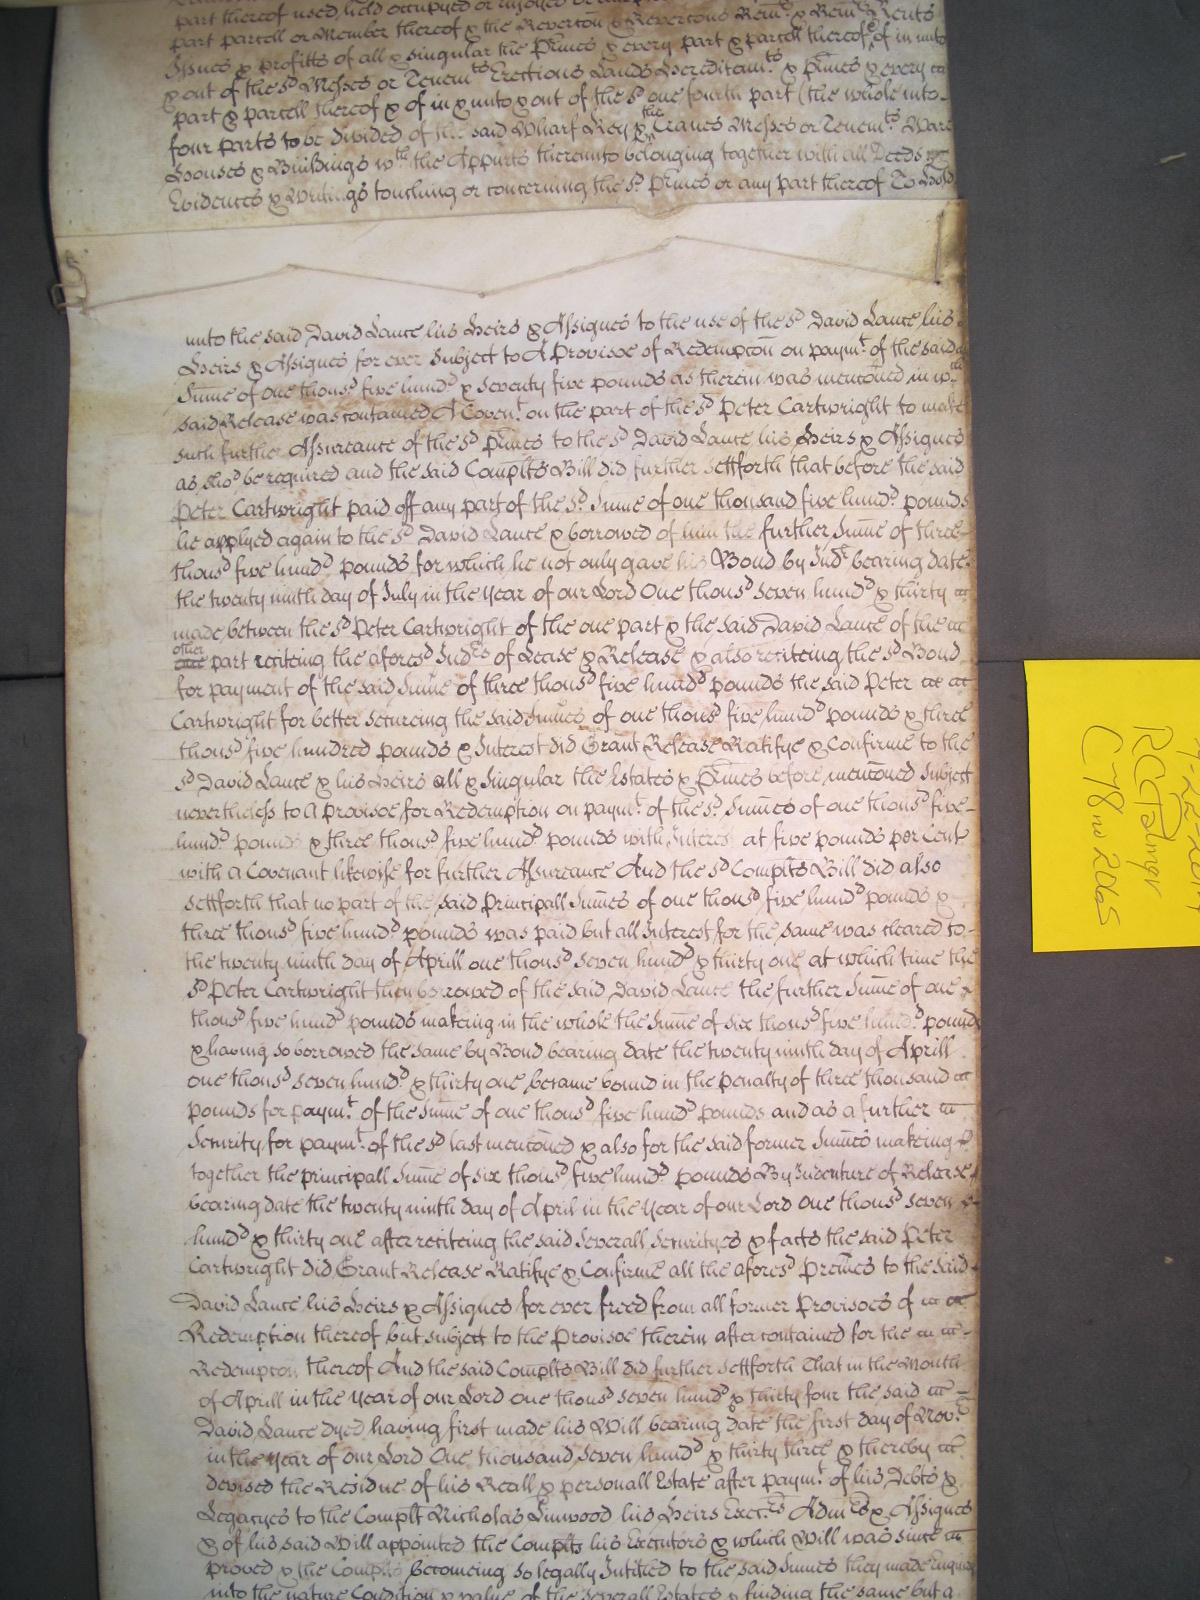 part thereof used, held occupyed or injoyed
part parcell or Member thereof & the Reverton & Revertons Remr. & Remrs. Rents
Issues & profitts of all & singular the Pmes & every part & parcell thereof & of in unto
& out of the sd. Messes or Tenemts. Erections Lands Hereditamts. & Pmes & every
part & parcell thereof & of in & unto & out of the sd. one fourth part (the whole into
four parts to be divided of the said Wharf Key & the Cranes Messes or Tenemts. Ware
Houses & Buildings wth. the Appurts thereunto belonging together with all Deeds
Evidences & Writings touching or concerning the sd. Pmes or any part thereof To Hold
unto the said David Lance his Heirs & Assignes to the use of the sd. David Lance his
Heirs & Assignes for ever Subject to A Provisoe of Redempcon on paymt. of the said
Sume of one thousd. five hundd. & seventy five pounds as therein was mencōned in wch
said Release was contained A Covent. on the part of the sd. Peter Cartwright to make
such further Assureance of the sd. Pmes to the sd. David Lance his Heirs & Assignes
as shod. be required and the said Complts Bill did further settforth that before the said
Peter Cartwright paid off any part of the sd. Sume of one thousand five hundd. pounds
he applyed again to the sd. David Lance & borrowed of him the further Sume of three
thousd. five hundd. pounds for which he not only gave his Bond by Indre. bearing date
the twenty ninth day of July in the Year of our Lord One thousd. seven hundd. & thirty
made between the sd. Peter Cartwright of the one part & the said David Lance of the
other part reciteing the aforesd. Indres of Lease & Release & also reciteing the sd. Bond
for payment of the said Sume of three thousd. five hundd. pounds the said Peter
Cartwright for better secureing the said Sumes of one thousd. five hundd. pounds & three
thousd. five hundred pounds & Interest did Grant Release Ratifye & Confirme to the
sd. David Lance & his Heirs all & Singular the Estates & Pmes before mencōned Subject
nevertheless to A Provisoe for Redemption on paymt. of the sd. Sumes of one thousd. five
hundd. pounds & three thousd. five hundd. pounds with Interest at five pounds per Cent
with a Covenant likewise for further Assureance And the sd. Complts Bill did also
settforth that no part of the said Principall Sumes of one thousd. five hundd. pounds &
three thousd. five hundd. pounds was paid but all Interest for the same was cleared to
the twenty ninth day of Aprill one thousd. seven hundd. & thirty one at which time the
sd. Peter Cartwright then borrowed of the said David Lance the further Sume of one
thousd. five hundd. pounds makeing in the whole the Sume of six thousd. five hundd. pounds
& having so borrowed the same by Bond bearing date the twenty ninth day of Aprill
one thousd. seven hundd. & thirty one became bound in the Penalty of three thousand
pounds for paymt. of the Sume of one thousd. five hundd. pounds and as a further
Security for paymt. of the sd. last mencōned & also for the said former Sumes makeing
together the principall Sume of six thousd. five hundd. pounds By Indenture of Release
bearing date the twenty ninth day of April in the Year of our Lord One thousd. seven
hundd. & thirty one after reciteing the said Severall Securityes & facts the said Peter
Cartwright did Grant Release Ratifye & Confirme all the aforesd. Premes to the said
David Lance his Heirs & Assignes for ever freed from all former Provisoes of
Redemption thereof but subject to the Provisoe therein after contained for the
Redempcon thereof And the said Complts Bill did further settforth That in the Month
of Aprill in the Year of our Lord One thousd. seven hundd. & thirty four the said
David Lance dyed having first made his Will bearing date the first day of Novr.
in the Year of our Lord One thousand seven hundd. & thirty three & thereby
devised the Residue of his Reall & personall Estate after paymt. of his Debts &
Legacyes to the Complt Nicholas Linwood his Heirs Execrs. Admrs & Assignes
& of his said Will appointed the Complts his Executors & which Will was since
proved & the Complts becomeing so legally Intitled to the said Sumes they made Enquiry
into the nature Condition & value of the severall Estates & finding the same but a
C 78 no 2065